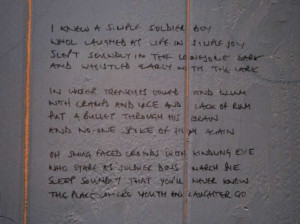 I KNEW A SIMPLE SOLDIER BOY
WHO LAUGHED AT LIFE IN SIMPLE JOY
SLEPT SOUNDLY IN THE LONESOME DARK
AND WHISTLED EARLY WITH THE LARK
IN WINTER TRENCHES COWED AND GLUM
WITH CRUMPS AND LICE AND LACK OF RUM
PUT A BULLET THROUGH HIS BRAIN
AND NO-ONE SPOKE OF HIM AGAIN
OH SMUG FACED CROWDS WITH KINDLING EYE
WHO STARE AS SOLDIER BOYS MARCH BYE
SLEEP SOUNDLY THAT YOU'LL NEVER KNOW
THE PLACE WHERE YOUTH AND LAUGHTER GO